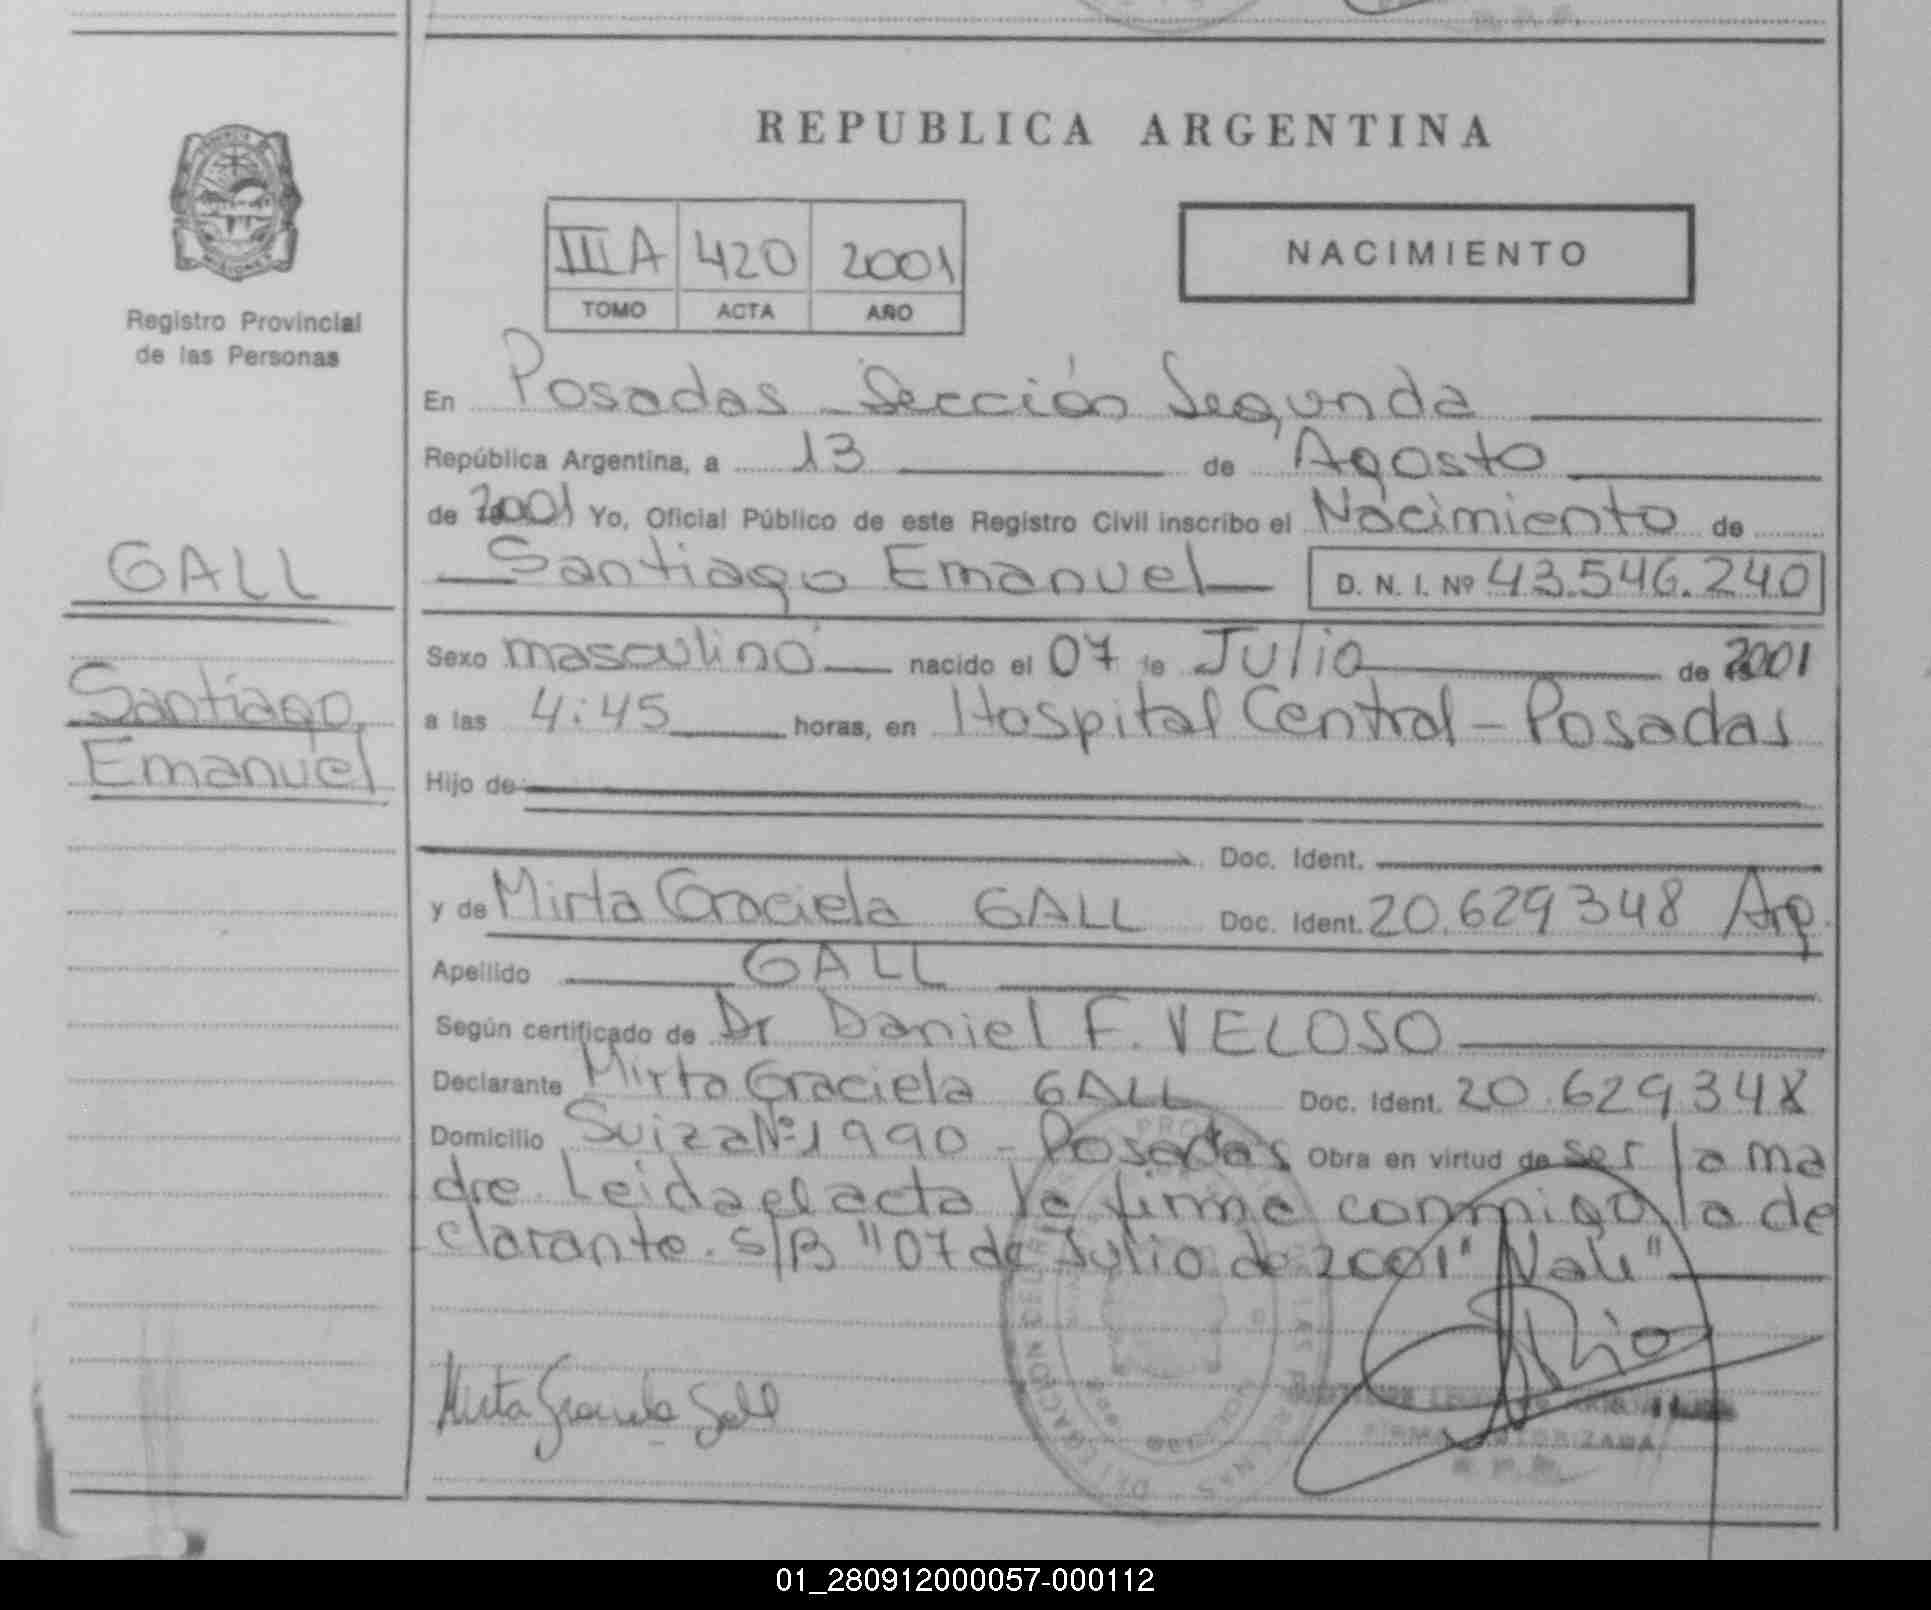 REPUBLICA ARGENTINA
IIIA 420 2001
TOMO ACTA AÑO
NACIMIENTO
Registro Provincial
de las Personas
En Posadas - Sección Segunda
República Argentina, a 13 de Agosto
de 2001 Yo, Oficial Público de este Registro Civil inscribo el Nacimiento de
Santiago Emanuel D. N. I. Nº 43.546.240
GALL
Santiago
Emanuel
Sexo masculino nacido el 07 de Julio de 2001
a las 4:45 horas, en Hospital Central - Posadas
Hijo de
Doc. Ident.
y de Mirta Graciela GALL Doc. Ident. 20.629348 Arg.
Apellido GALL
Según certificado de Dr Daniel F. VELOSO
Declarante Mirta Graciela GALL Doc. Ident. 20.629348
Domicilio Suiza Nº 1990 - Posadas Obra en virtud de ser la ma
dre. Leida el acta la firma conmigo la de
clarante. S/B "07 de Julio de 2001" Vale"
Mirta Graciela Gall
FIRMA AUTORIZADA
01_280912000057-000112